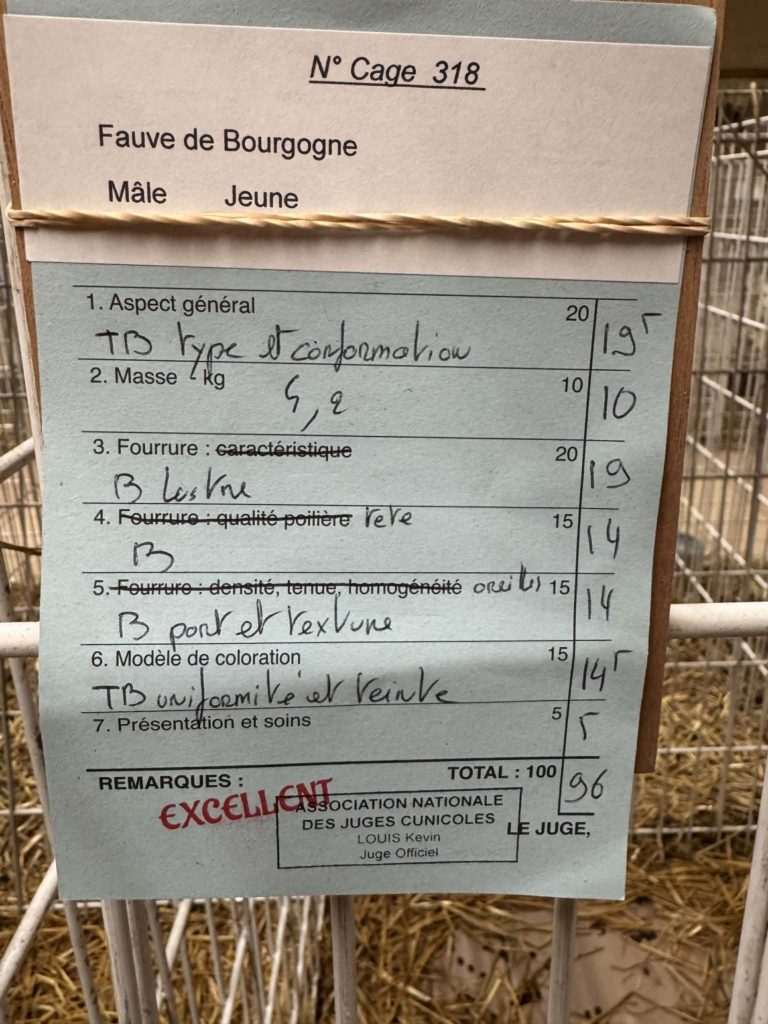 N° Cage 318
Fauve de Bourgogne
Mâle Jeune
1. Aspect général 20 19⁵
TB type et conformation
2. Masse kg 10 10
4,2
3. Fourrure : caractéristique 20 19
B Lustre
4. Fourrure : qualité poilière tete 15 14
B
5. Fourrure : densité, tenue, homogénéité oreilles 15 14
B port et texture
6. Modèle de coloration 15 14⁵
TB uniformité et teinte
7. Présentation et soins 5 5
REMARQUES : TOTAL : 100 96
EXCELLENT
ASSOCIATION NATIONALE
DES JUGES CUNICOLES
LOUIS Kevin
Juge Officiel
LE JUGE,